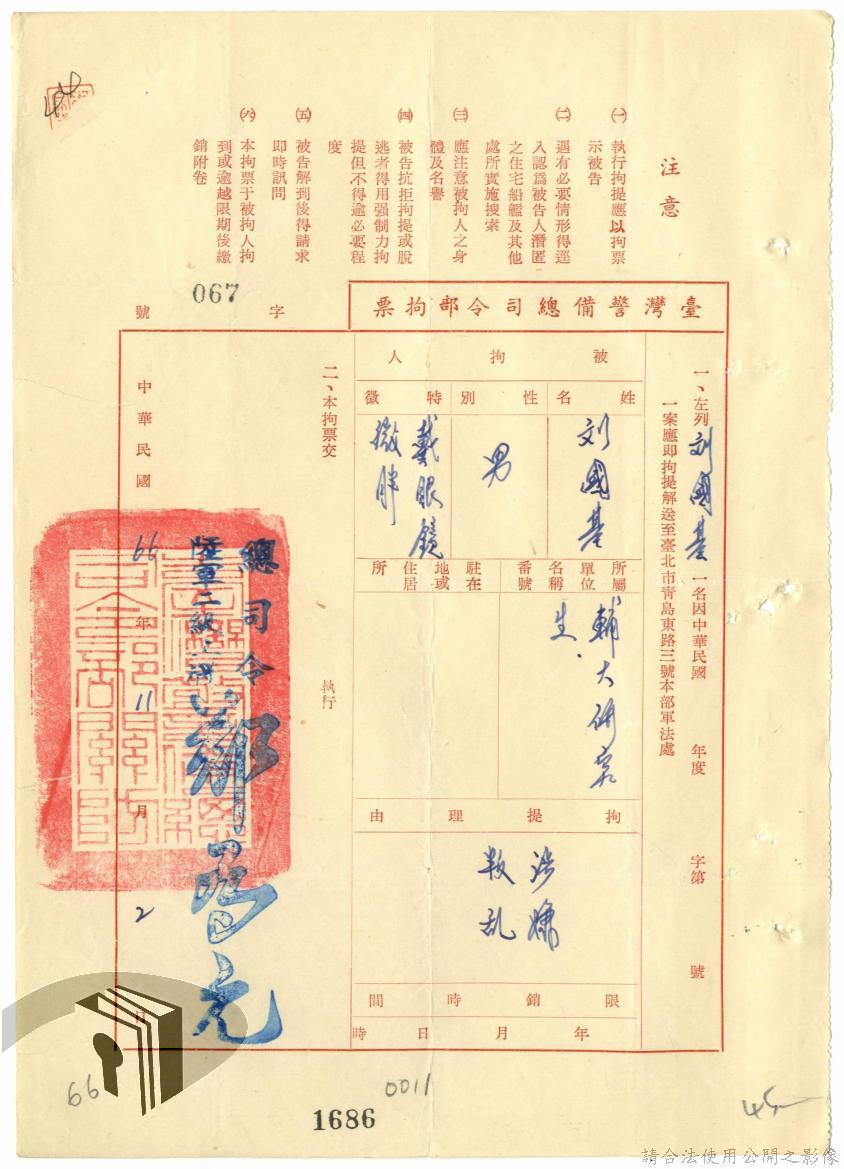 注意
㈠ 執行拘提應以拘票
示被告
㈡ 遇有必要情形得逕
入認爲被告人潛匿
之住宅船艦及其他
處所實施搜索
㈢ 應注意被拘人之身
體及名譽
㈣ 被告抗拒拘提或脫
逃者得用强制力拘
提但不得逾必要程
度
㈤ 被告解到後得請求
即時訊問
㈥ 本拘票于被拘人拘
到或逾越限期後繳
銷附卷
臺灣警備總司令部拘票
字 067 號
一、左列刘國基一名因中華民國 年度 字第 號
一案應即拘提解送至臺北市靑島東路三號本部軍法處
被拘人
姓名
刘國基
性別
男
特徵
戴眼鏡
微胖
所屬單位名稱番號
輔大研究
生
駐在地或住居所
拘提理由
涉嫌
叛乱
限銷時間
年 月 日 時
二、本拘票交 執行
總司令
陸軍二級上將 鄭為元
中華民國 66 年 11 月 2 日
66
0011
1686
45
請合法使用公開之影像